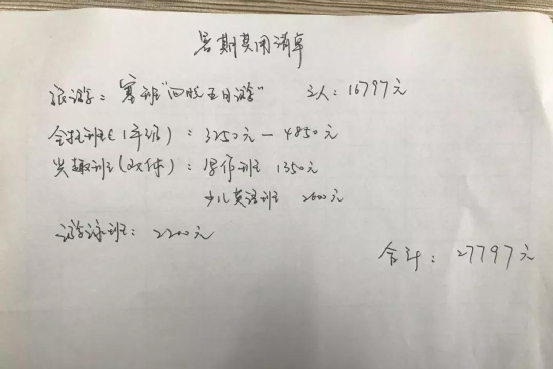 暑期费用清单
旅游: 塞班"四晚五日游" 三人: 16797元
全托班(1年级): 3250元-4850元
兴趣班(文体): 写作班 1350元
少儿英语班 2600元
游泳班: 2200元
合计: 27797元